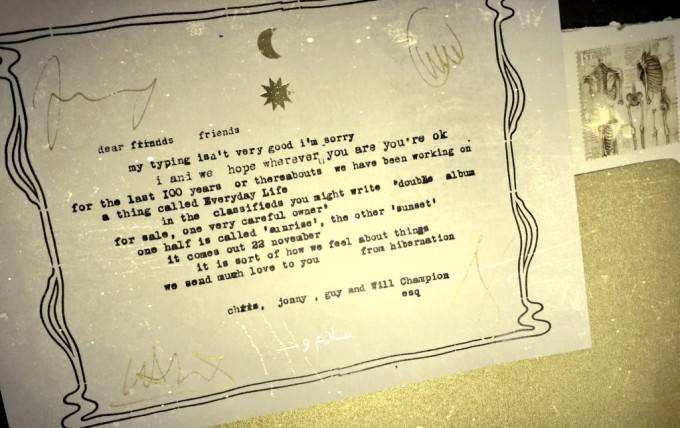 dear friends friends
my typing isn't very good i'm sorry
i and we hope wherever you are you're ok
for the last 100 years or thereabouts we have been working on
a thing called Everyday Life
in the classifieds you might write 'double album
for sale, one very careful owner'
one half is called 'sunrise', the other 'sunset'
it comes out 22 november
it is sort of how we feel about things
we send much love to you from hibernation
chris, jonny , guy and Will Champion
esq